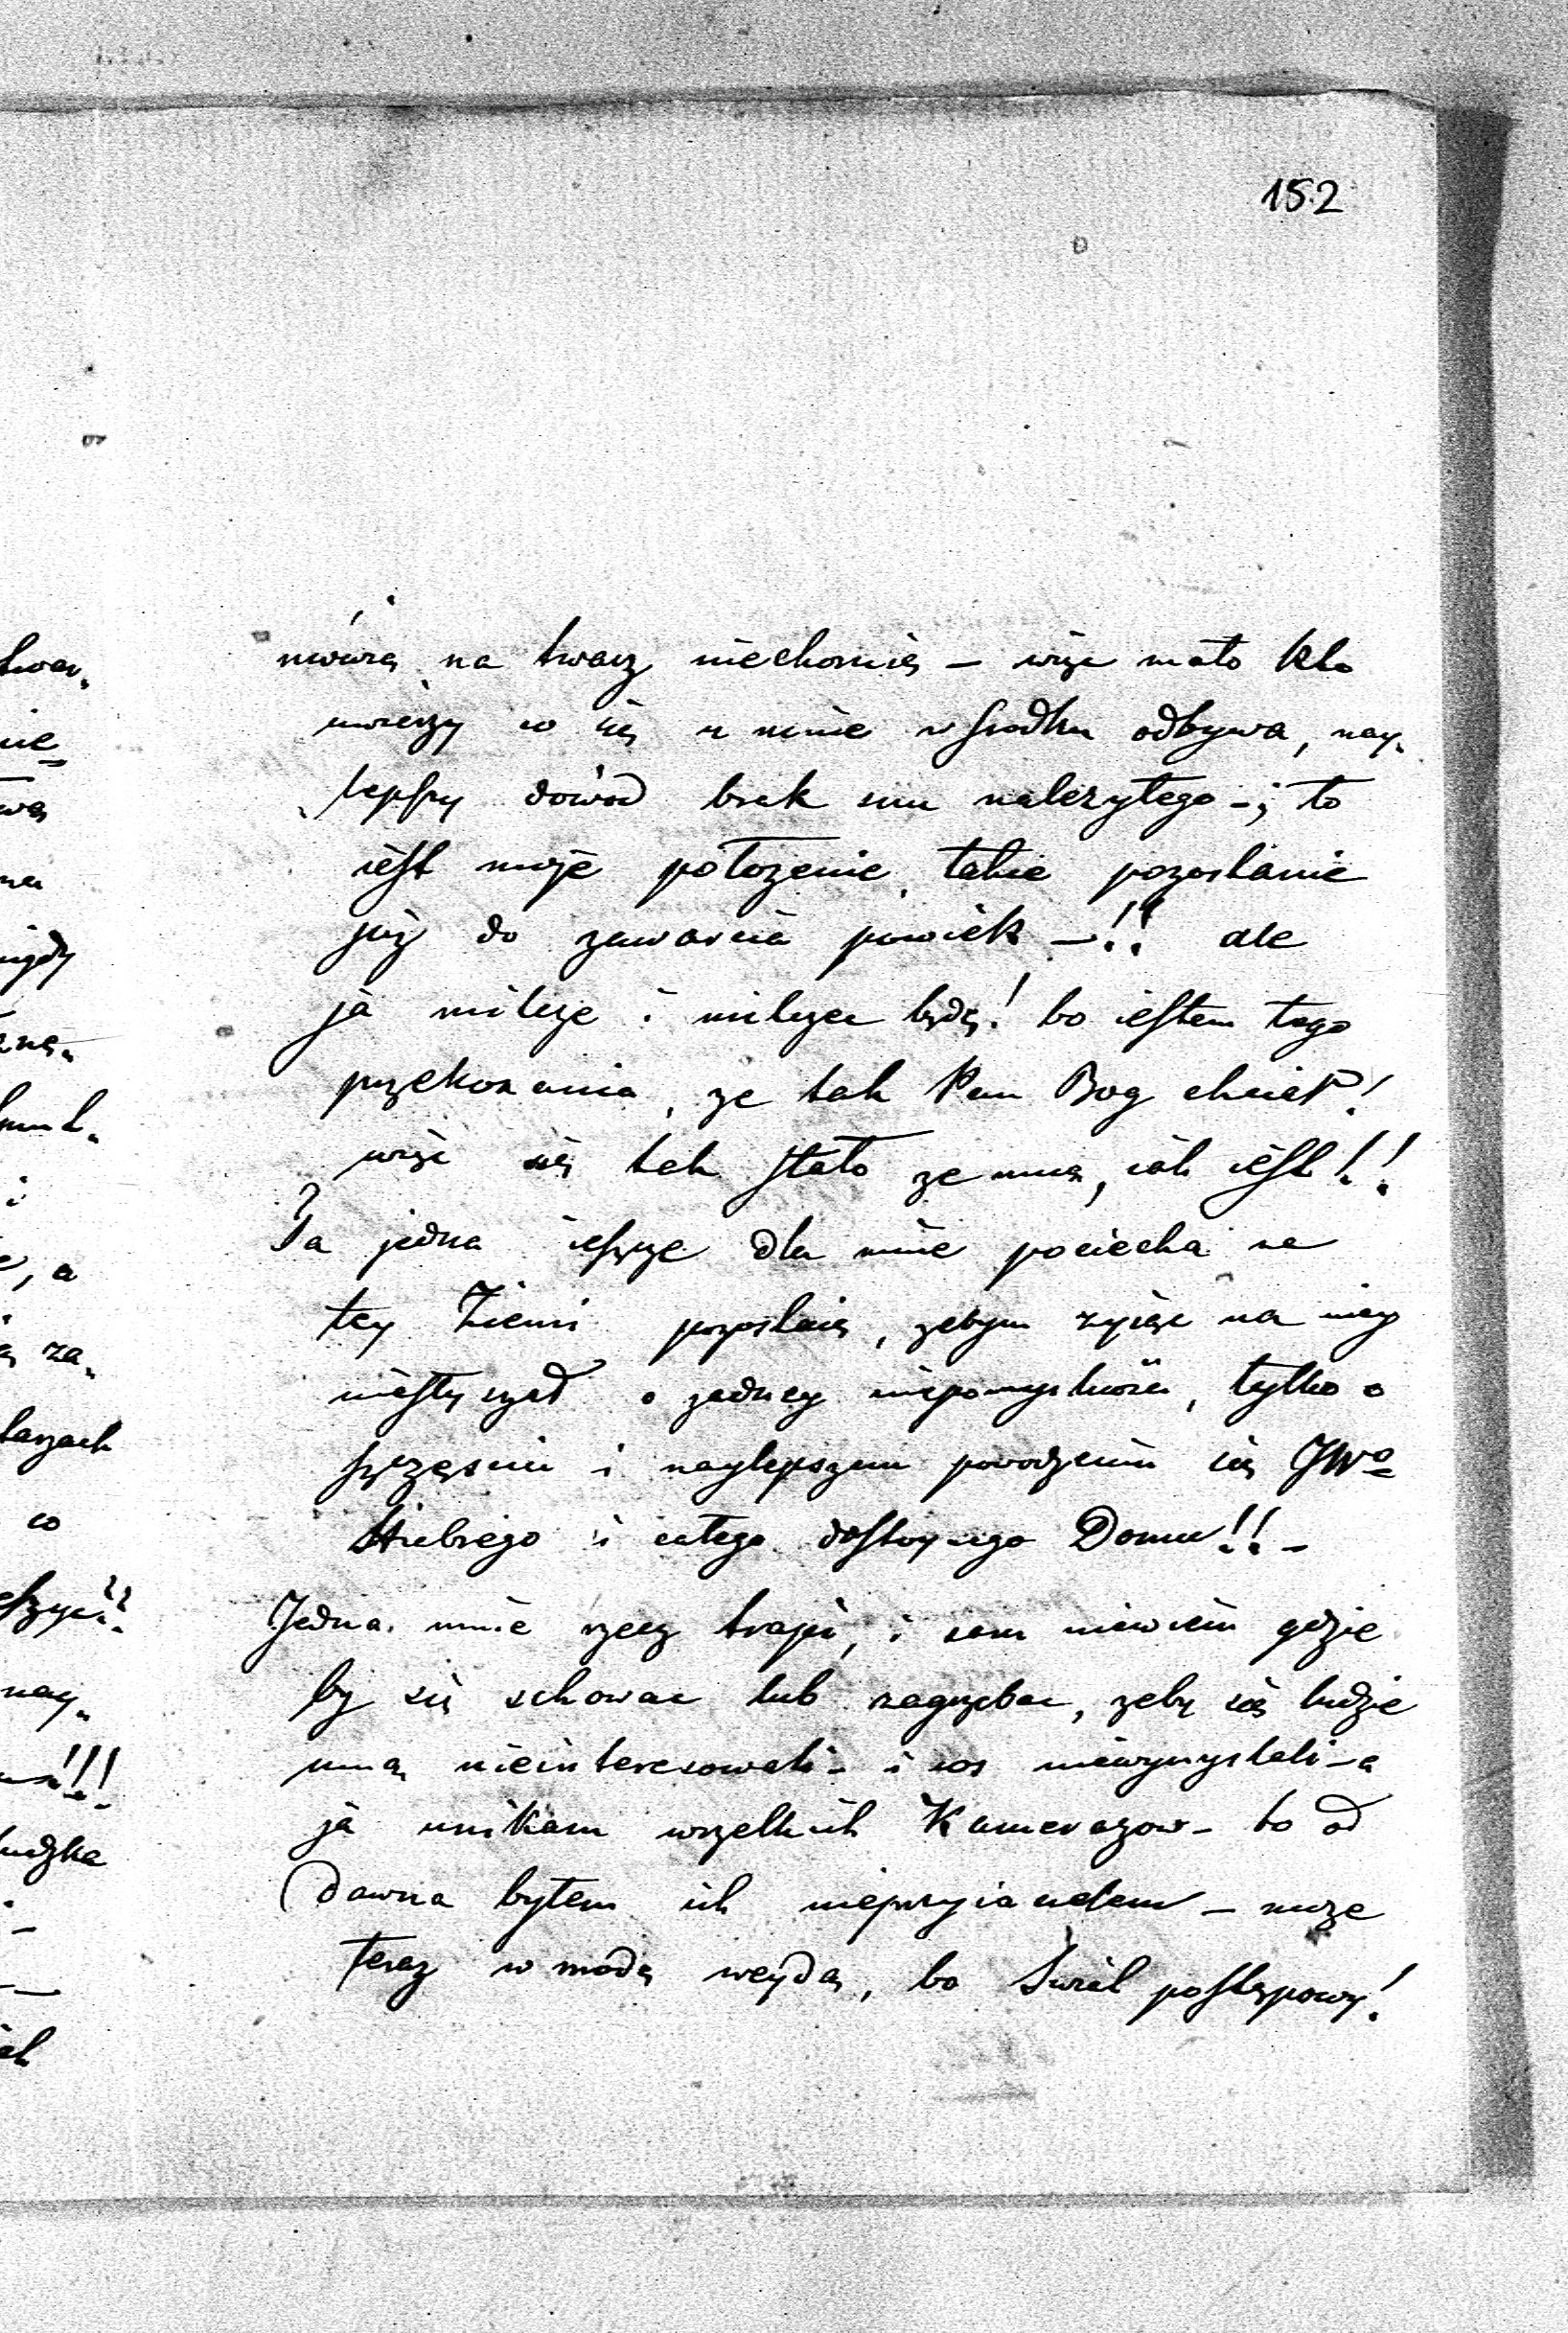 152
mówią na twarz niechorują – więc mało kto
uwierzy co się u mnie w srodku odbywa, nay-
lepszy dowód brak snu nalezytego –; to
iest moje połozenie, takie pozostanie
juz do zawarcia powiek –!! ale
ja milcze i milczec będę! bo iestem tego
przekonania, ze tak Pan Bog chciał!
więc się tak stało ze mną, iak iest!!
Ta jedna ieszcze dla mnie pociecha na
tey Ziemi pozostaie, zebym zyiąc na niey
niesłyszał o zadney niepomyslnosci, tylko o
szczęsciu i naylepszem powodzeniu się JWo
Hrabiego i całego dostoynego Domu!! –
Jedna mnie rzecz trapi, i sam niewiem gdzie
by się schowac lub zagrzebac, zeby się ludzie
mną nieinteresowali – i cos niewymyslali – a
ja unikam wszelkich Kamerazow – bo od
dawna byłem ich nieprzyiacielem – moze
teraz w modę weydą, bo Swiat postępowy!